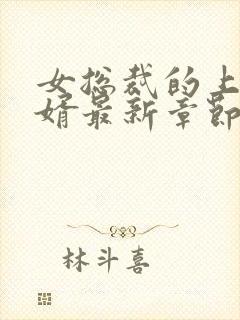 女总裁的上
婿最新章节
林斗喜